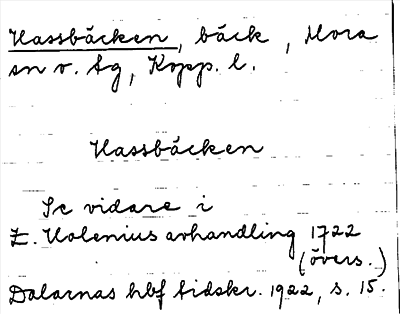 Hassbäcken, bäck, Mora
sn v. Ag, Kopp. l.
Hassbäcken
Se vidare i
E. Holenius avhandling 1722
(övers.)
Dalarnas hbf tidskr. 1922, s. 15.